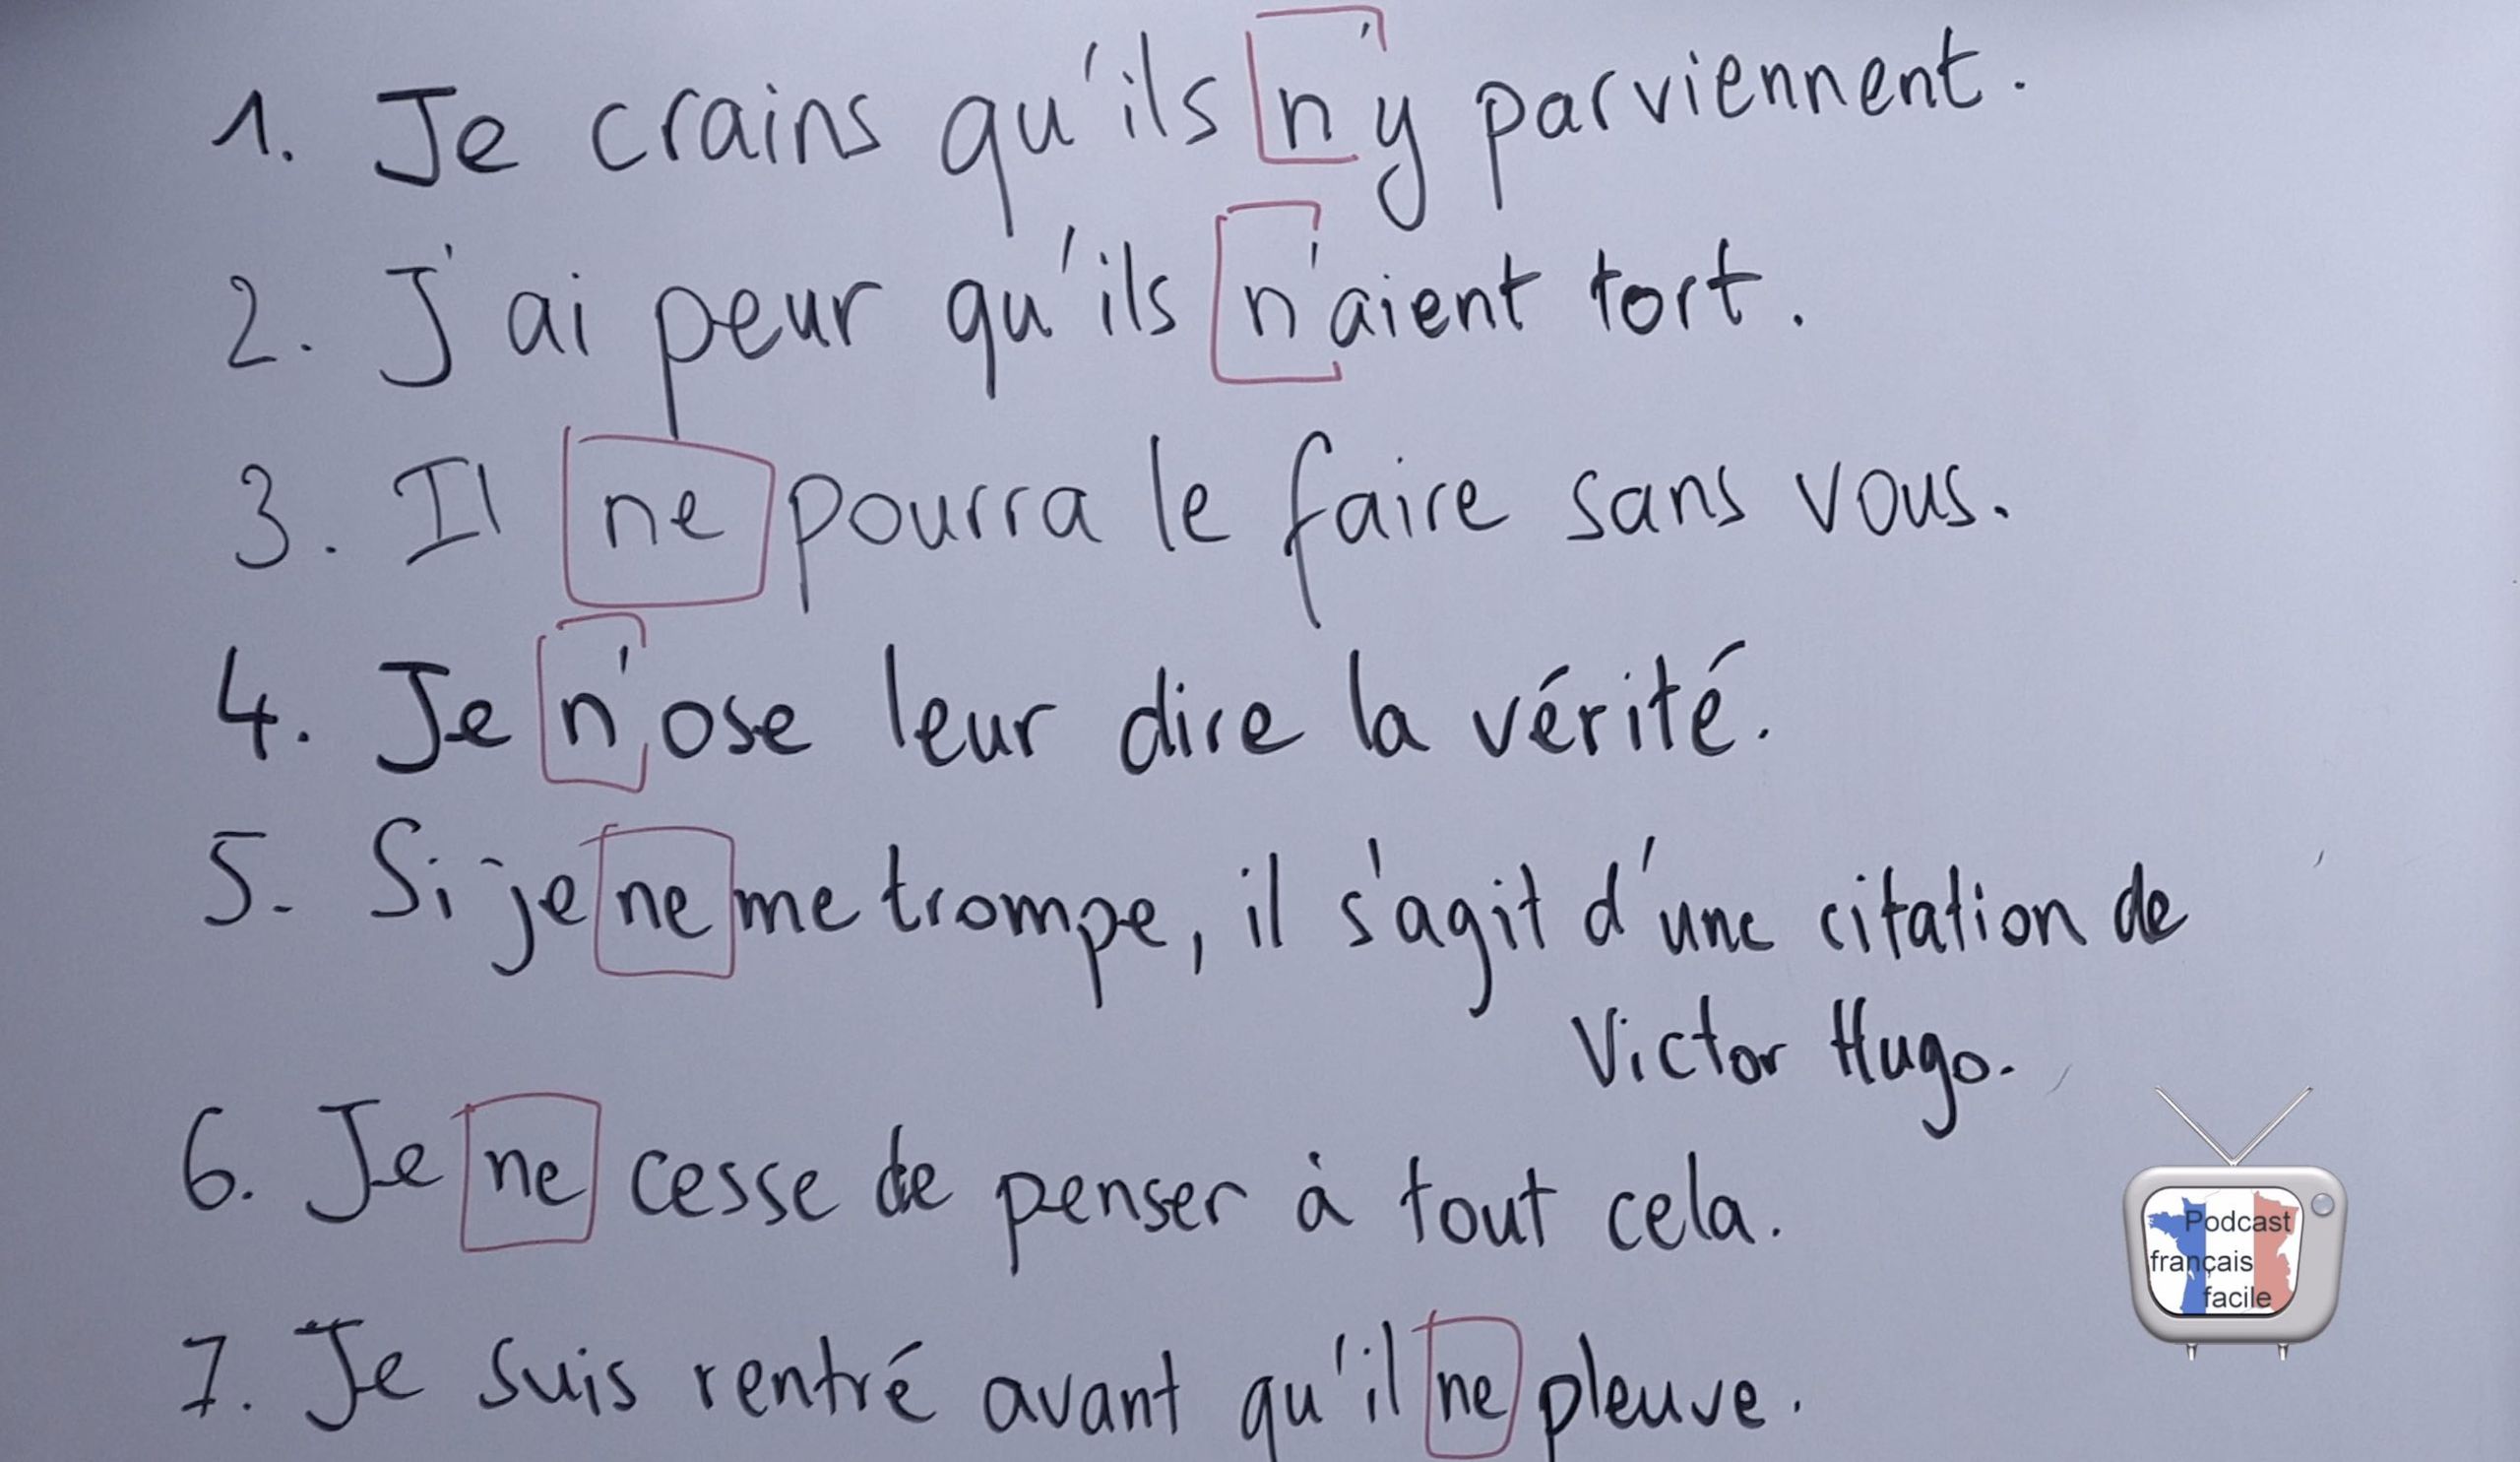 1. Je crains qu'ils n'y parviennent.
2. J'ai peur qu'ils n'aient tort.
3. Il ne pourra le faire sans vous.
4. Je n'ose leur dire la vérité.
5. Si je ne me trompe, il s'agit d'une citation de
Victor Hugo.
6. Je ne cesse de penser à tout cela.
7. Je suis rentré avant qu'il ne pleuve.
Podcast
français
facile